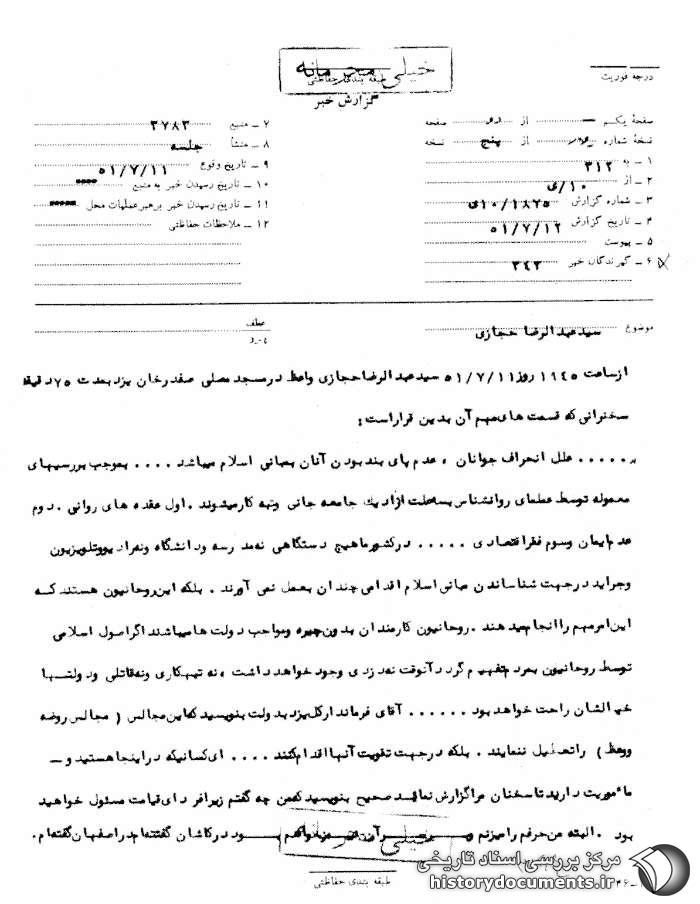 خیلی محرمانه
درجه فوریت
طبقه بندی حفاظتی
گزارش خبر
صفحهٔ یکم — از دو صفحه
نسخهٔ شماره از پنج نسخه
۱ ـ به ۳۱۲
۲ ـ از ۱۰/ی
۳ ـ شماره گزارش ۱۰/۱۸۲۵ی
۴ ـ تاریخ گزارش ۵۱/۷/۱۲
۵ ـ پیوست
۶ ـ گیرندگان خبر ۳۴۳
۷ ـ منبع ۳۷۸۳
۸ ـ منشأ جلسه
۹ ـ تاریخ وقوع ۵۱/۷/۱۱
۱۰ ـ تاریخ رسیدن خبر به منبع
۱۱ ـ تاریخ رسیدن خبر برهبر عملیات محل
۱۲ ـ ملاحظات حفاظتی
موضوع سیدعبدالرضا حجازی
عطف
ازساعت ۱۹۴۵ روز ۵۱/۷/۱۱ سیدعبدالرضاحجازی واعظ درمسجد مصلی صفدرخان یزدبمدت ۷۵دقیقه
سخنرانی که قسمت های مهم آن بدین قراراست :
..... علل انحراف جوانان ، عدم پای بندبودن آنان بمبانی اسلام میباشد .... بموجب بررسیهای
معموله توسط علمای روانشناس بسه علت افراد یك جامعه جانی وتبه کارمیشوند . اول عقده های روانی . دوم
عدم ایمان وسوم فقراقتصادی ..... درکشورماهیچ دستگاهی نه مدرسه ودانشگاه ونه رادیووتلویزیون
وجراید درجهت شناساندن مبانی اسلام اقدامی چندان بعمل نمی آورند . بلکه این روحانیون هستند که
این امرمهم راانجام میدهند . روحانیون کارمندان بدون جیره ومواجب دولت هامیباشند اگراصول اسلامی
توسط روحانیون بمردم تفهیم گردد آنوقت نه دزدی وجود خواهدداشت ، نه تبهکاری ونه قاتلی ودولتها
خیالشان راحت خواهدبود ...... آقای فرماندارکل یزدبدولت بنویسیدکه این مجالس ( مجالس روضه
ووعظ ) راتعطیل ننمایند . بلکه درجهت تقویت آنها اقدام کنند .... ای کسانیکه دراینجاهستید و ــ
مأموریت داریدتاسخنان مراگزارش نمائید صحیح بنویسیدکه من چه گفتم زیرافردای قیامت مسئول خواهید
بود . البته من حرفم رامیزنم و بود درکاشان گفته ام دراصفهان گفته ام .
خیلی محرمانه
طبقه بندی حفاظتی
مرکز بررسی اسناد تاریخی
historydocuments.ir